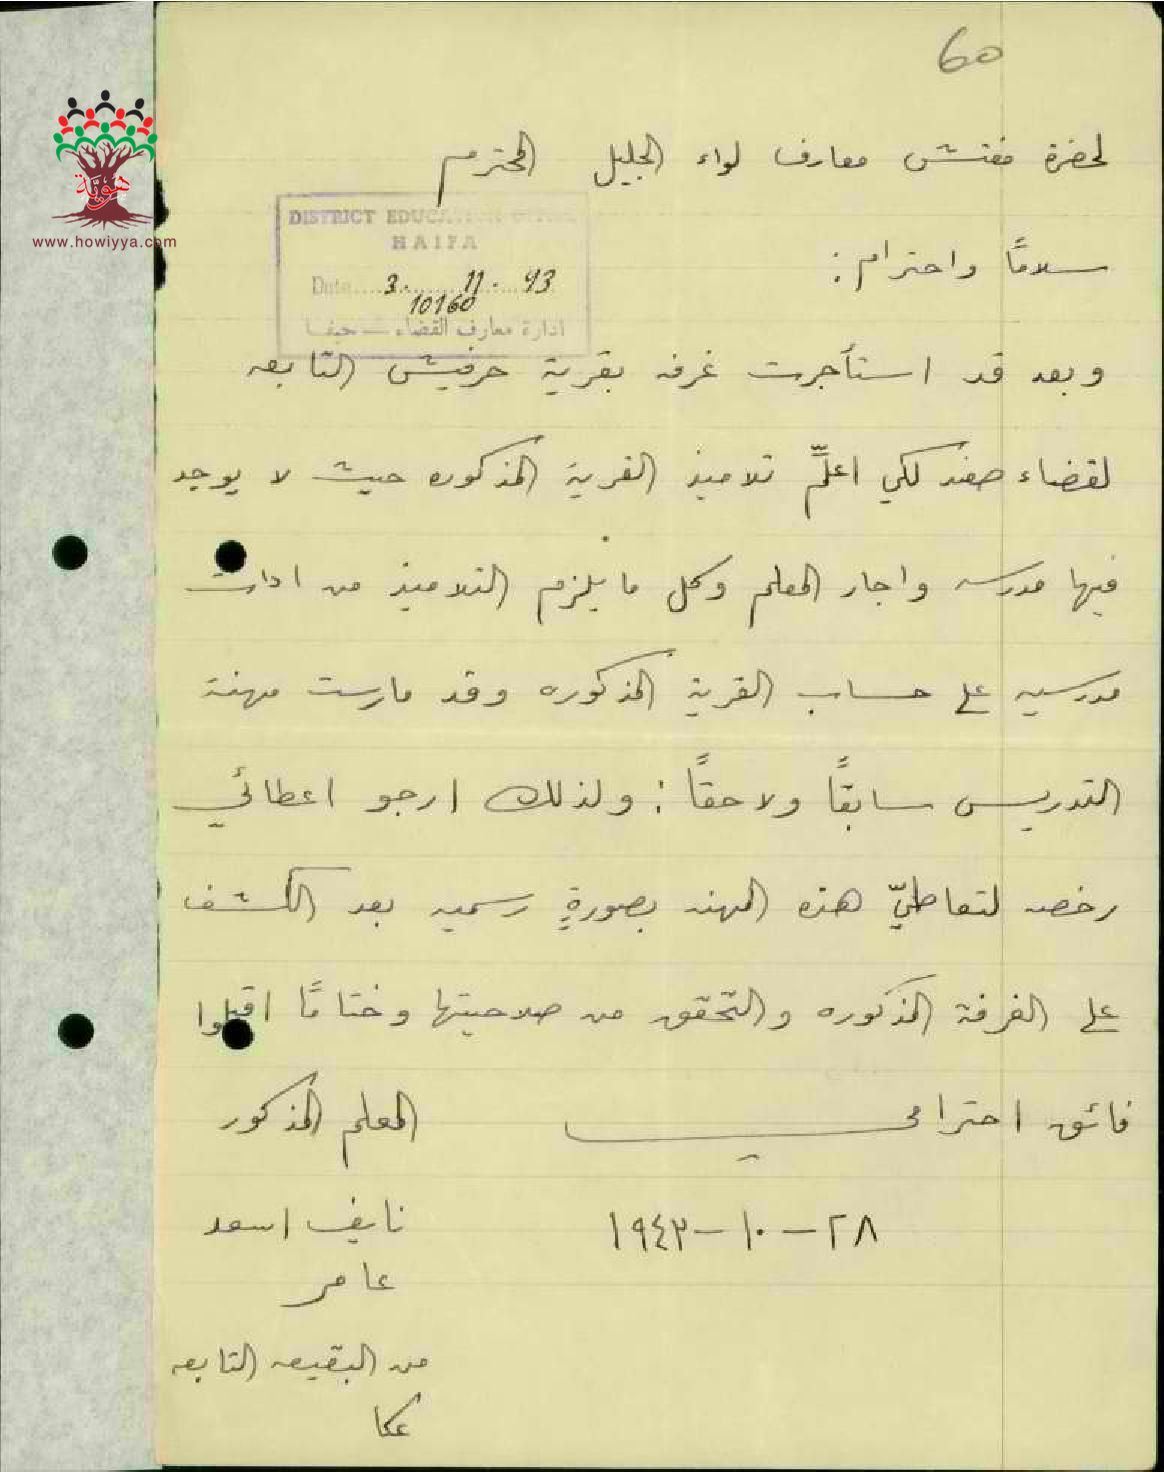 60
لحضرة مفتش معارف لواء الجليل المحترم
هوية
www.howiyya.com
DISTRICT EDUCATION OFFICE
HAIFA
Date....3......11.....43
10160
ادارة معارف القضاء – حيفا
سلامًا واحترام:
وبعد قد استأجرت غرفه بقرية حرفيش التابعه
لقضاء صفد لكي اعلّم تلاميذ القرية المذكوره حيث لا يوجد
فيها مدرسه واجار المعلم وكل ما يلزم التلاميذ من ادات
مدرسيه على حساب القرية المذكوره وقد مارست مهنة
التدريس سابقًا ولاحقًا: ولذلك ارجو اعطائي
رخصه لتعاطيّ هذه المهنه بصورةٍ رسميه بعد الكشف
على الغرفة المذكوره والتحّقق من صلاحيتها وختامًا اقبلوا
فائق احترامي
المعلم المذكور
٢٨-١٠-١٩٤٣
نايف اسعد
عامر
من البقيعه التابعه
عكا